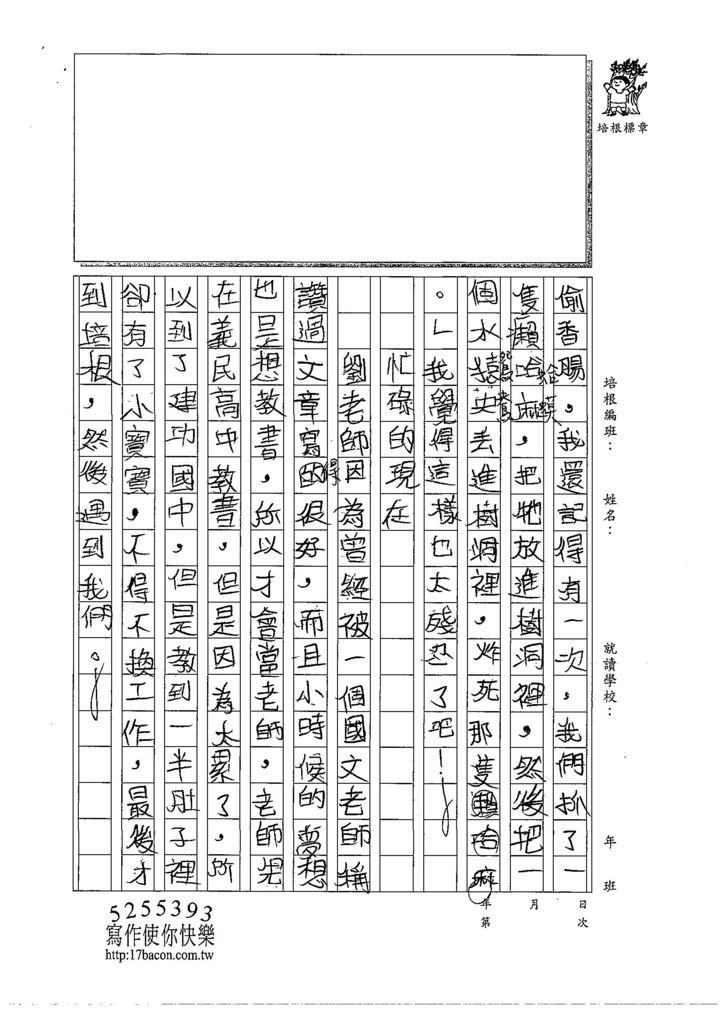 培根標章
培根編班：
姓名：
就讀學校：
年 班
偷香腸，我還記得有一次，我們抓了一
隻癩哈麻，把牠放進樹洞裡，然後把一
蛤蟆
個水鴛央丟進樹洞裡，炸死那隻癩哈麻
鴛鴦
。」我覺得這樣也太殘忍了吧！
忙碌的現在
劉老師因為曾經被一個國文老師稱
讚過文章寫的很好，而且小時候的夢想
得
也是想教書，所以才會當老師，老師先
在義民高中教書，但是因為太累了，所
以到了建功國中，但是教到一半肚子裡
卻有了小寶寶，不得不換工作，最後才
到培根，然後遇到我們。
年 月 日
第 次
5255393
寫作使你快樂
http:17bacon.com.tw